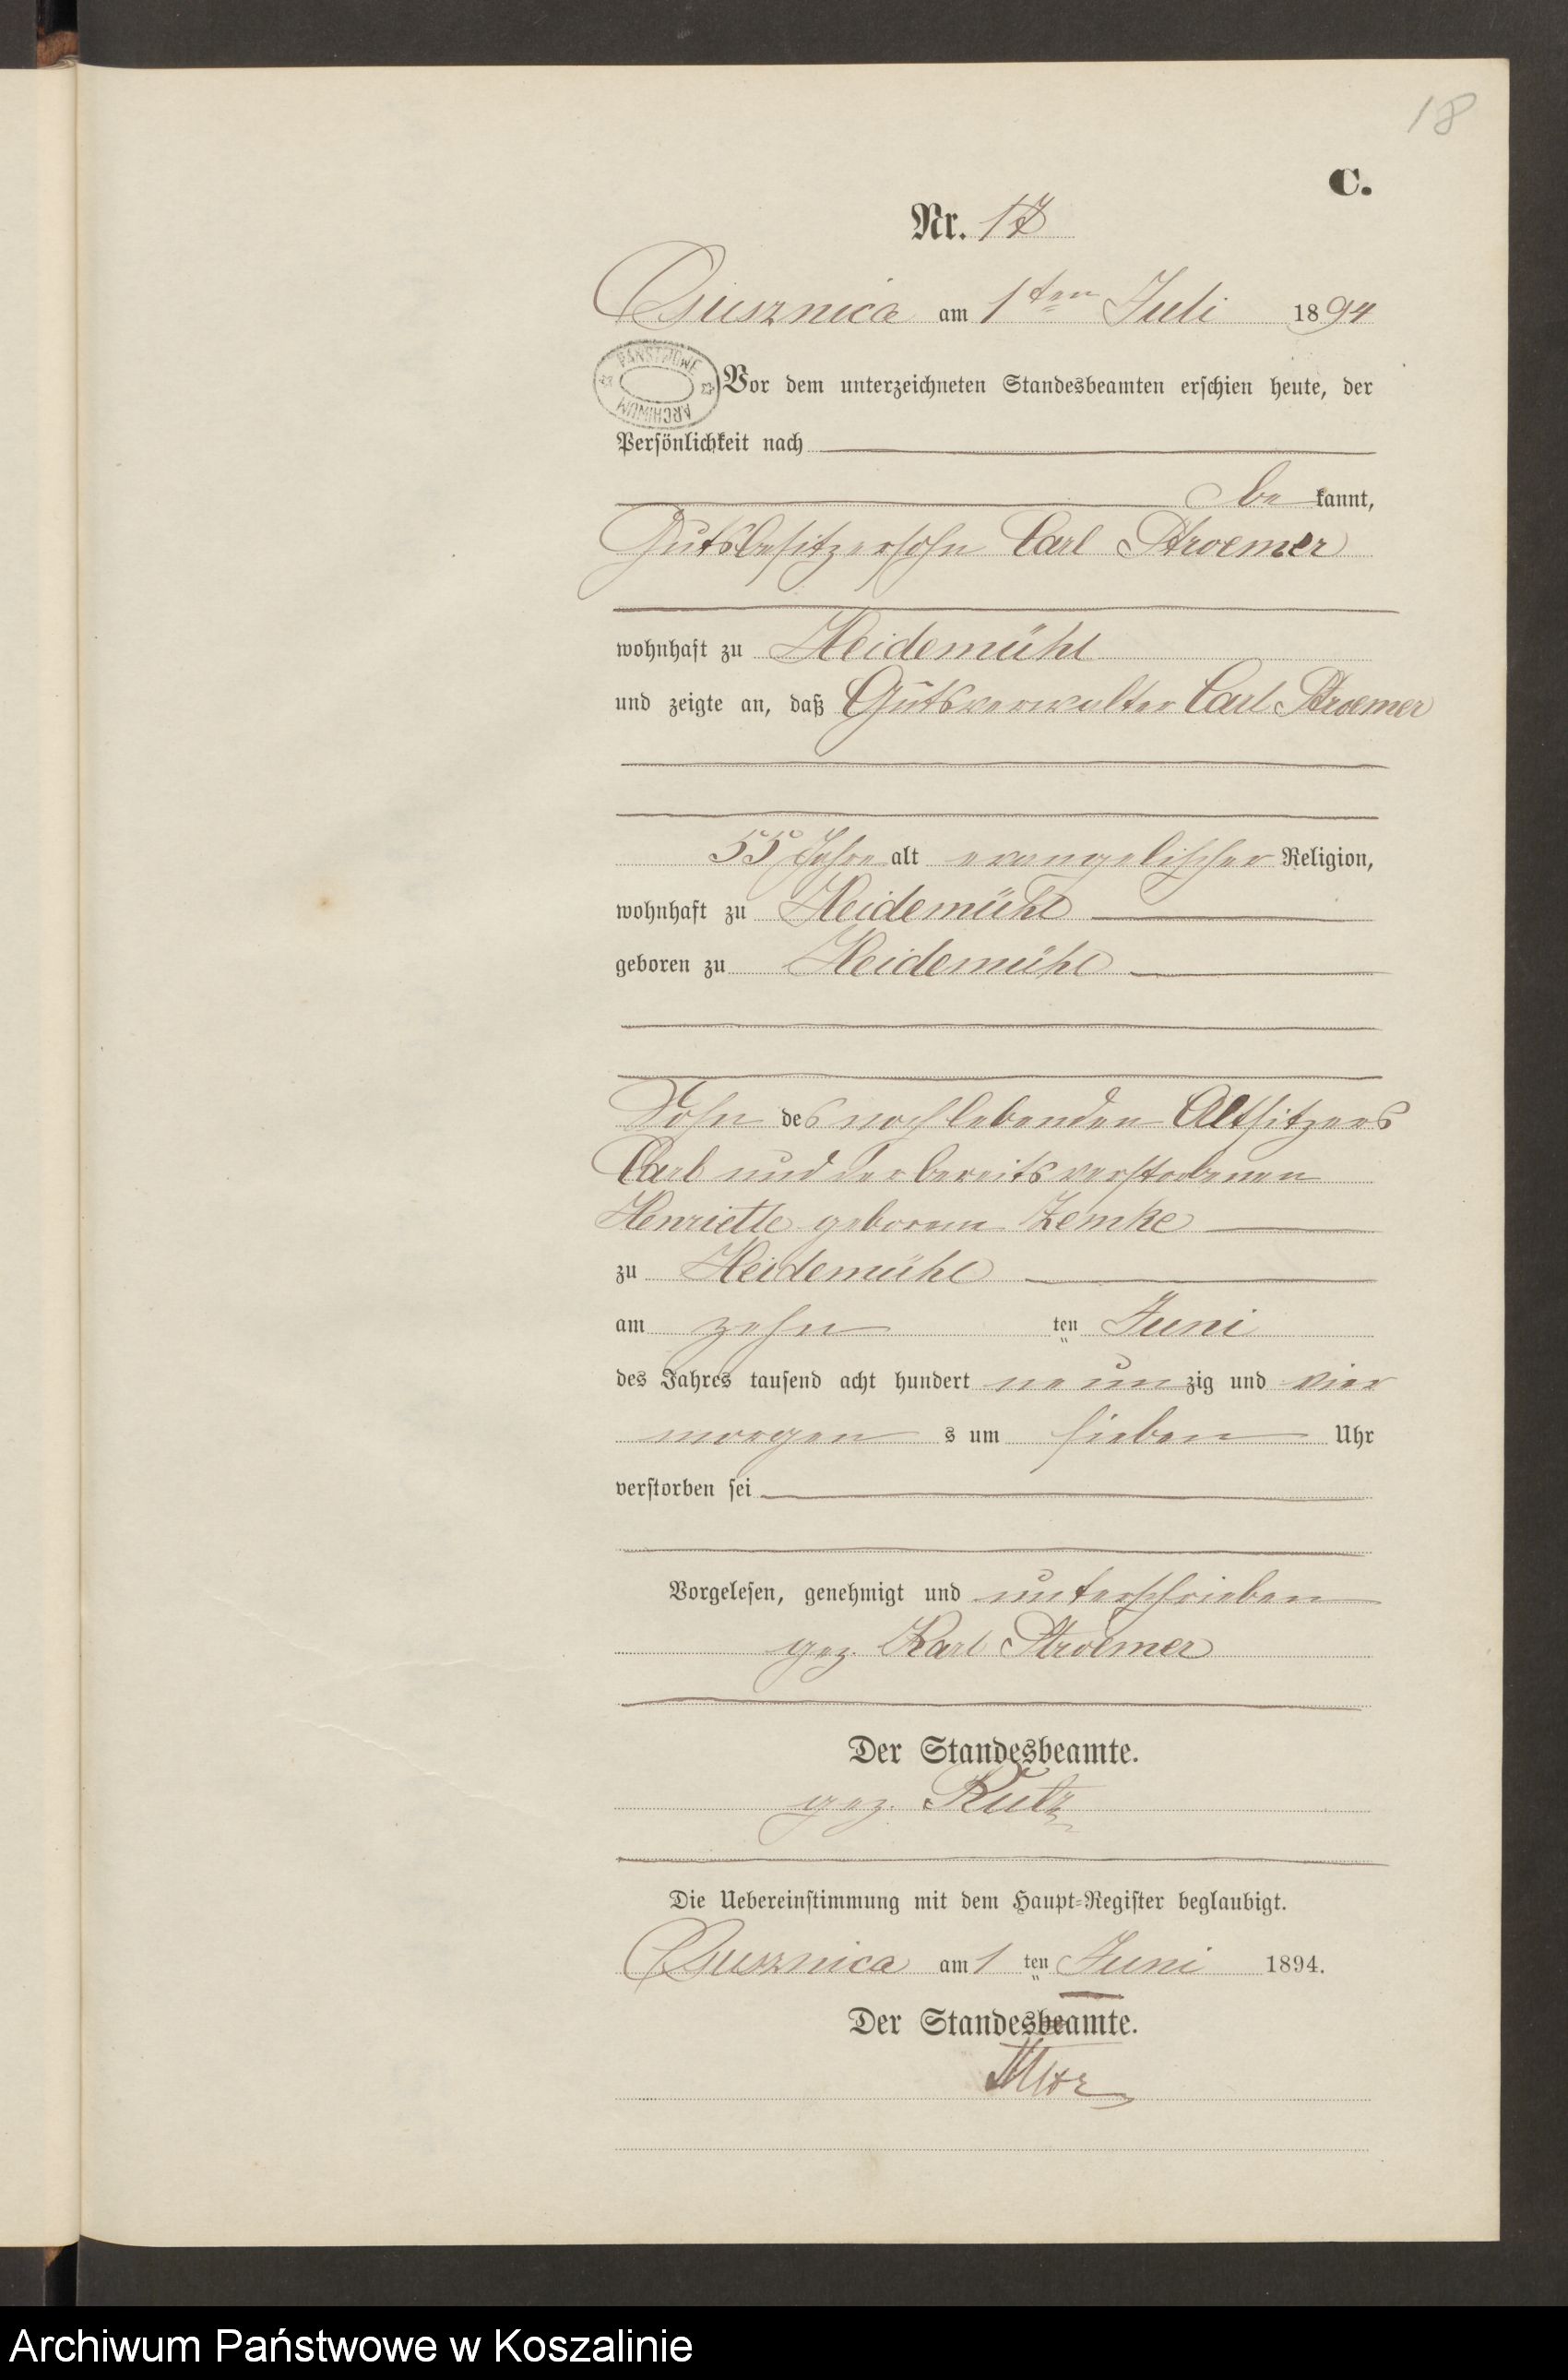 18
C.
Nr. 17
Briesnica am 1ten Juli 1894
PAŃSTWOWE ARCHIWUM
Vor dem unterzeichneten Standesbeamten erschien heute, der
Persönlichkeit nach
be kannt,
Gutsbesitzersohn Carl Stroemer
wohnhaft zu Heidemühl
und zeigte an, daß Gutsverwalter Carl Stroemer
55 Jahre alt evangelischer Religion,
wohnhaft zu Heidemühl
geboren zu Heidemühl
Sohn des noch lebenden Altsitzers
Carl und der bereits verstorbenen
Henriette geborenen Zemke
zu Heidemühl
am zehn ten Juni
des Jahres tausend acht hundert neun zig und vier
morgen s um sieben Uhr
verstorben sei
Vorgelesen, genehmigt und unterschrieben
gez. Karl Stroemer
Der Standesbeamte.
gez. Rutz
Die Uebereinstimmung mit dem Haupt-Register beglaubigt.
am 1 ten Juni 1894.
Der Standesbeamte.
Archiwum Państwowe w Koszalinie